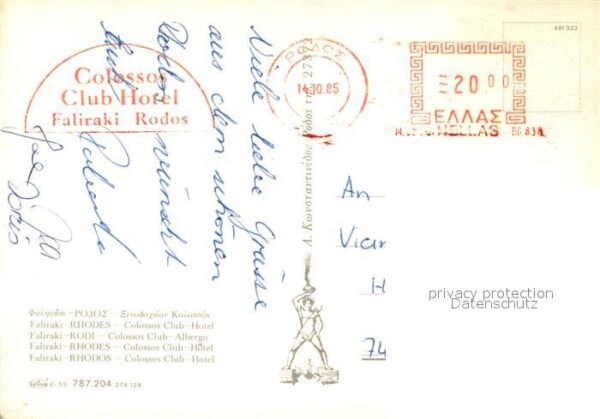 Colossos
Club Hotel
Faliraki Rodos
ΡΟΔΟΣ
14.10.85
20.00
ΕΛΛΑΣ
HELLAS
481 922
Viele liebe Grüsse
aus dem schönen
Rodos wünscht
An
H
74
privacy protection
Datenschutz
Φαληράκι - ΡΟΔΟΣ - Ξενοδοχείον Κολοσσός
Faliraki - RHODES - Colossos Club-Hotel
Faliraki - RODI - Colossos Club-Albergo
Faliraki - RHODES - Colossos Club-Hôtel
Faliraki - RHODOS - Colossos Club-Hotel
55 787.204 274 128